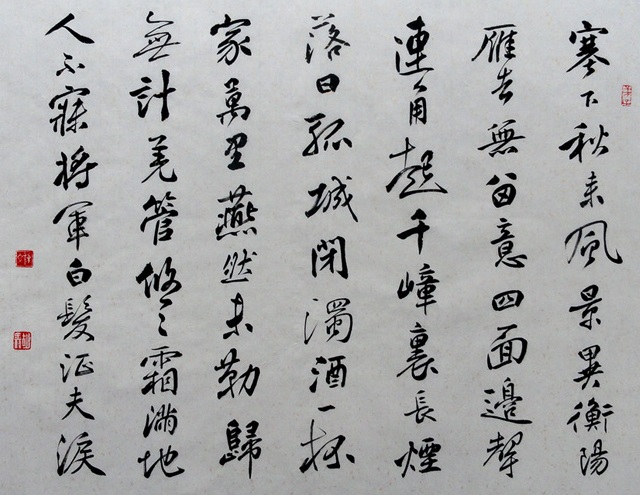 塞下秋来風景異衡陽
雁去無留意四面邊聲
連角起千嶂裏長煙
落日孤城閉濁酒一杯
家萬里燕然未勒歸
無計羌管悠々霜滿地
人不寐將軍白髮征夫淚